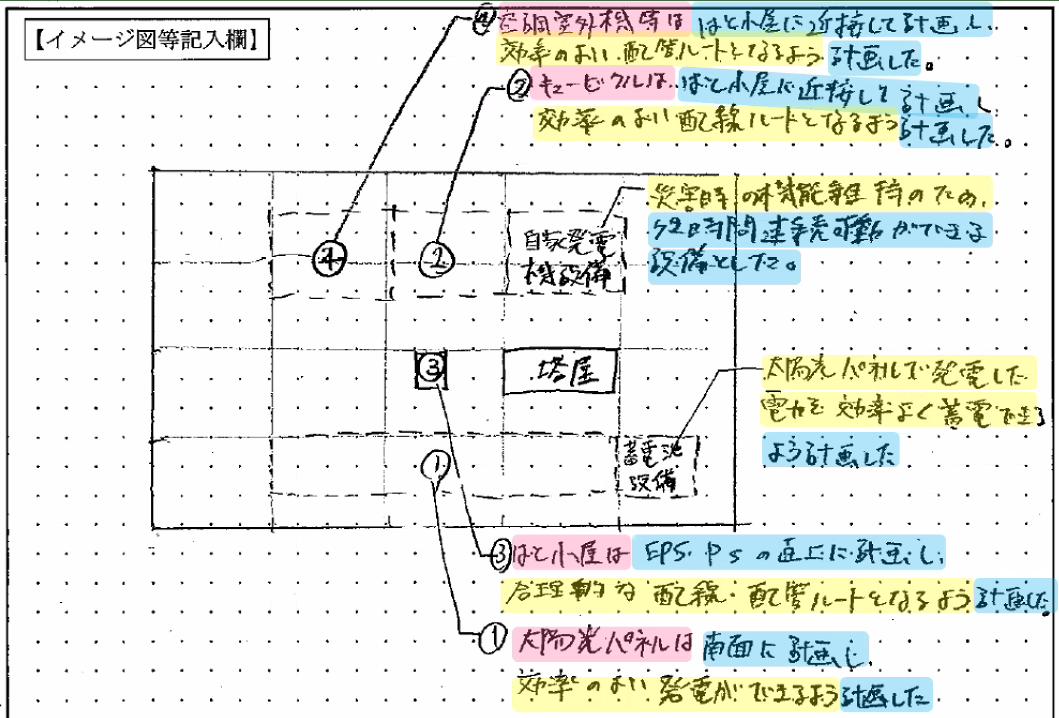 【イメージ図等記入欄】
④空調室外機等ははと小屋に近接して計画し
効率のよい配管ルートとなるよう計画した。
②キュービクルははと小屋に近接して計画し
効率のよい配線ルートとなるよう計画した。
災害時の機能維持のため、
72時間連続可動ができる
設備とした。
自家発電
機設備
④
②
③
塔屋
太陽光パネルで発電した
電力を効率よく蓄電できる
よう計画した
蓄電池
設備
①
③はと小屋は EPS・PSの直上に計画し、
合理的な配線・配管ルートとなるよう計画した。
①太陽光パネルは南面に計画し、
効率のよい発電ができるよう計画した